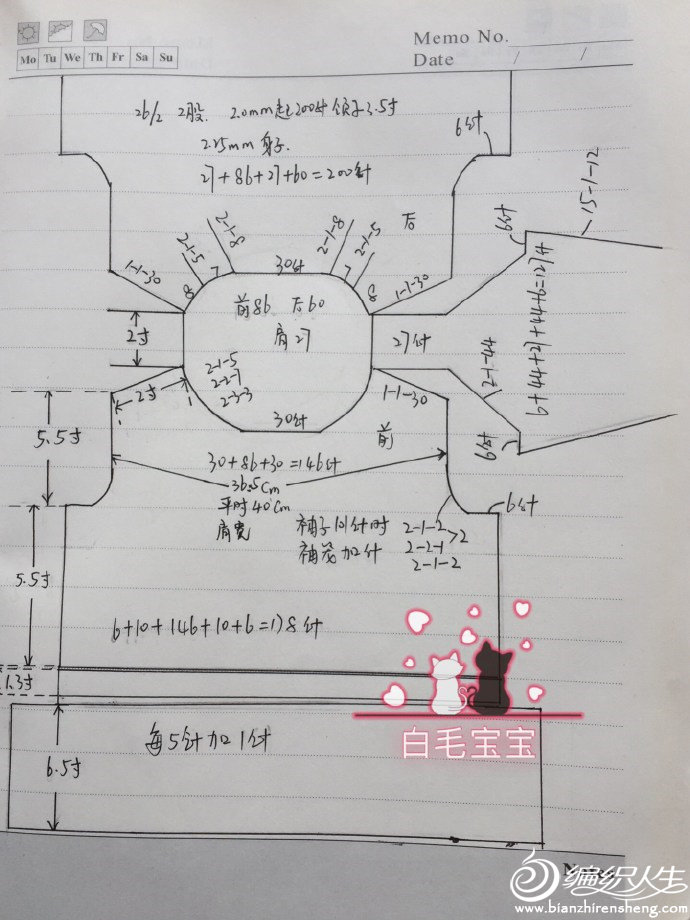 Memo No.
Mo Tu We Th Fr Sa Su
Date / /
26/2 2股. 2.0mm起200针 领子3.5寸
2.25mm 身子.
27+86+27+60=200针
6针
15-1-12
6针
后
2-1-8
2-1-5
2-1-8
2-1-5
1-1-30
7
30针
7
8
8
1-1-30
前86 后60
肩27
2寸
27针
6+44+27+44+6=127针
2-1-44
2-1-5
2-2-7
2-3-3
2寸
1-1-30
30针
前
6针
5.5寸
30+86+30=146针
36.5cm
平时40cm
肩宽
6针
袖子101针时
袖笼加针
2-1-2
2-2-1 >2
2-1-2
5.5寸
6+10+146+10+6=178针
1.3寸
白毛宝宝
每5针加1针
6.5寸
编织人生
www.bianzhirensheng.com